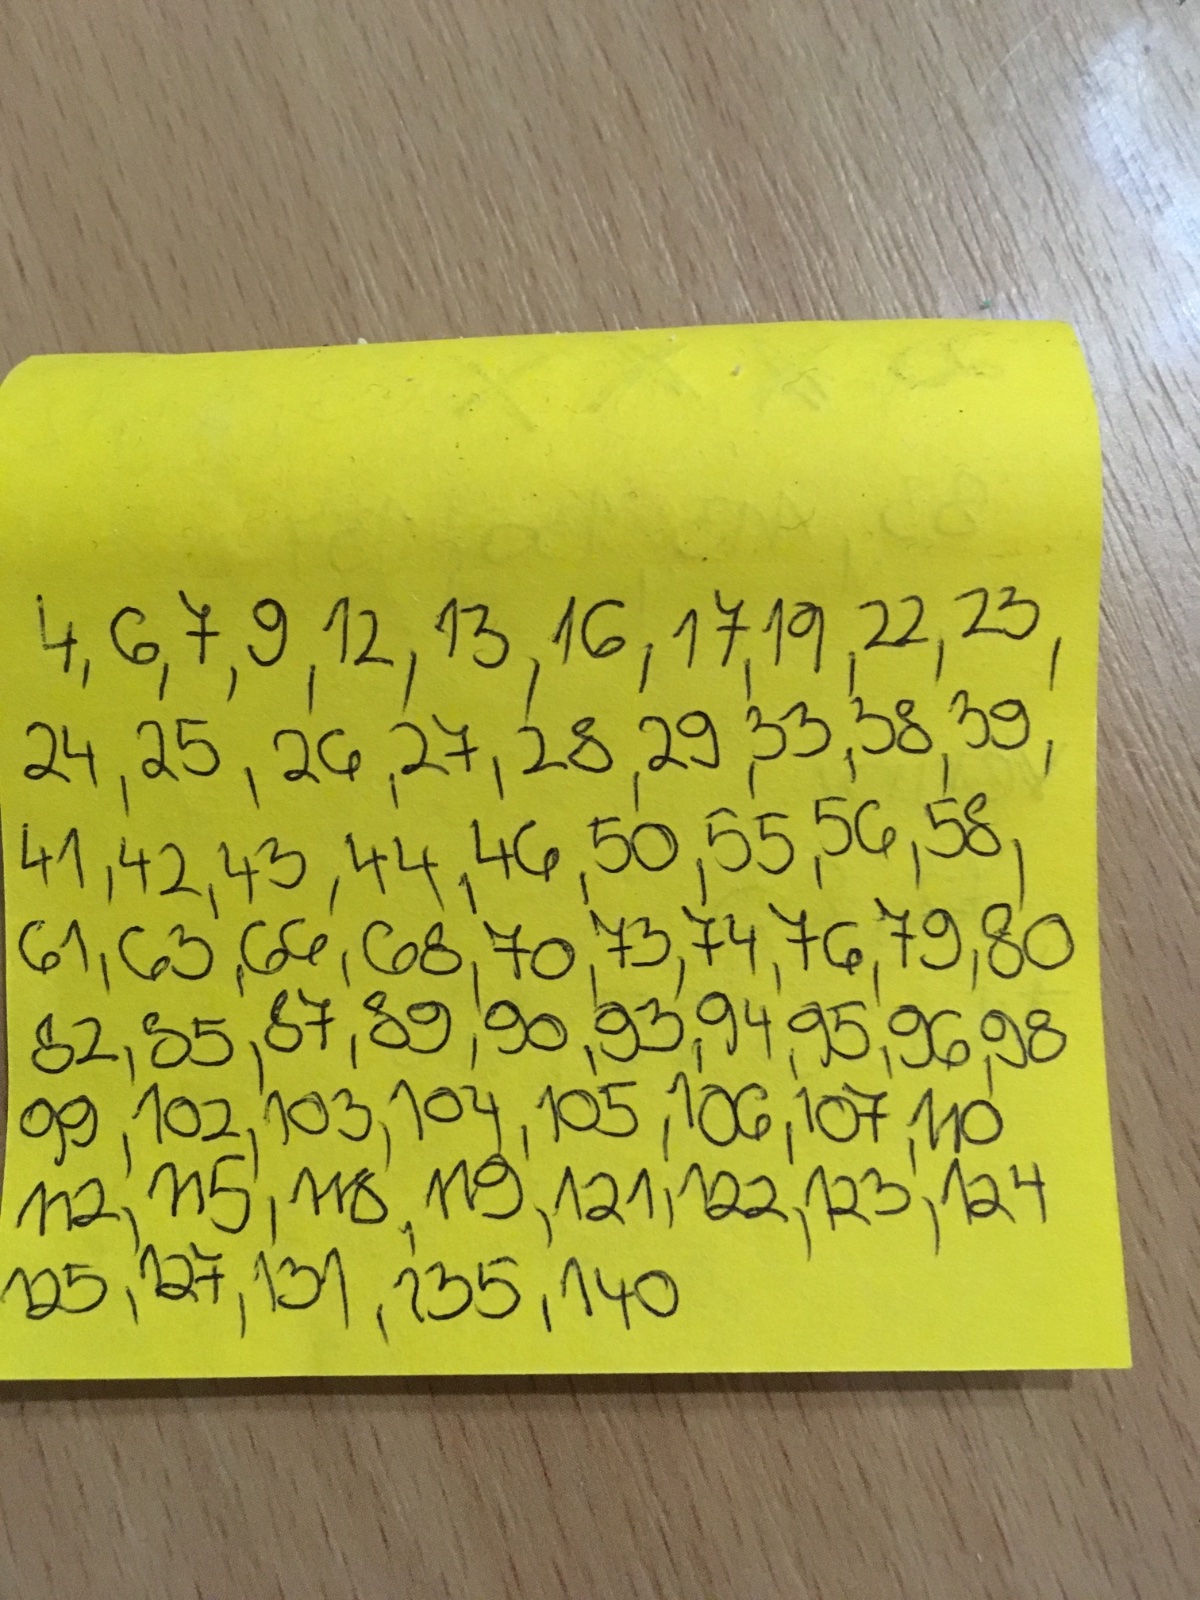 4, 6, 7, 9, 12, 13, 16, 17, 19, 22, 23,
24, 25, 26, 27, 28, 29, 33, 38, 39,
41, 42, 43, 44, 46, 50, 55, 56, 58,
61, 63, 66, 68, 70, 73, 74, 76, 79, 80
82, 85, 87, 89, 90, 93, 94, 95, 96, 98
99, 102, 103, 104, 105, 106, 107, 110
112, 115, 118, 119, 121, 122, 123, 124
125, 127, 131, 135, 140